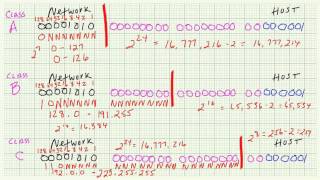 CLASS Network HOST
A 128 64 32 16 8 4 2 1
00001010
0NNNNNNN 2^24 = 16,777,216 - 2 = 16,777,214
2^7 0 - 127
0 - 126
CLASS Network HOST
B 128 64 32 16 8 4 2 1
10NNNNNN NNNNNNNN 2^16 = 65,536 - 2 = 65,534
128.0 - 191.255
2^14 = 16,384
CLASS Network 2^24 = 16,777,216 2^8 = 256 - 2 = 254
C 128 64 32 16 8 4 2 1 HOST
110NNNNN NNNNNNNN NNNNNNNN
192.0.0 - 223.255.255